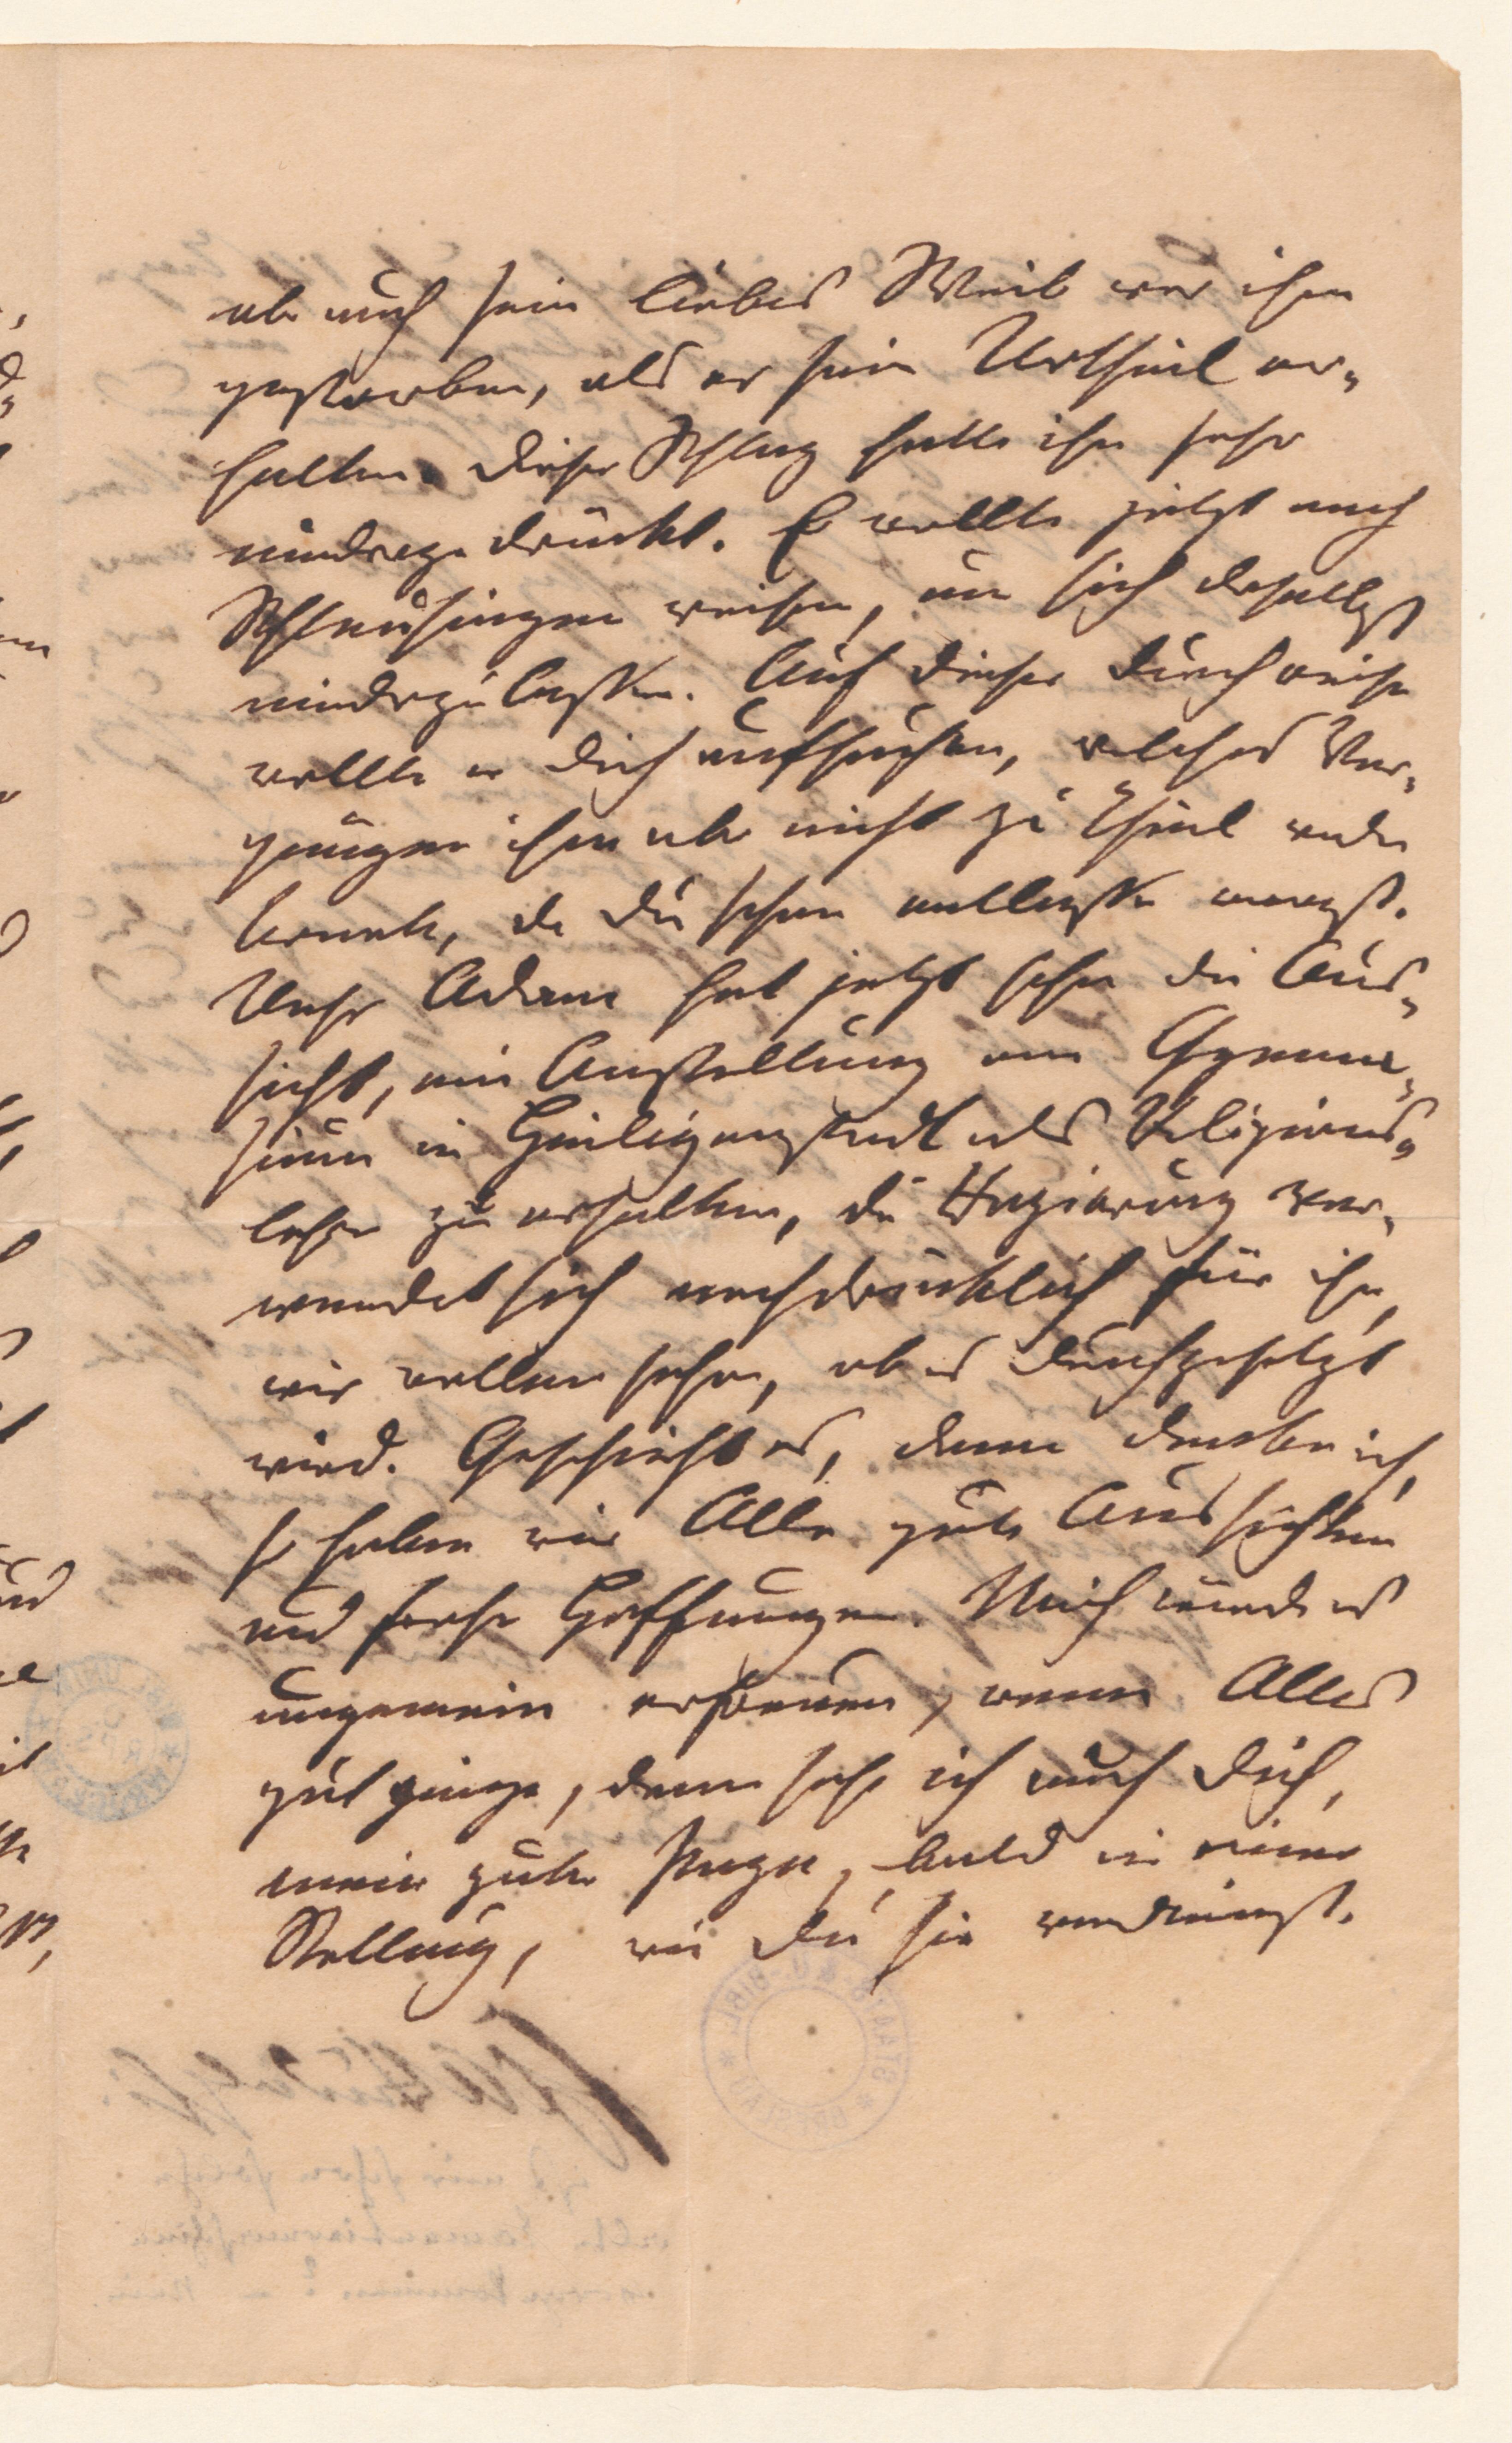 aber auch sein liebes Weib war ihm
gestorben, als er sein Urtheil er-
halten. Dieser Schlag hatte ihn sehr
niedergedrückt. Er wollte jetzt nach
Schleusingen reisen, um sich daselbst
niederzulassen. Auf dieser Durchreise
wollte er Dich aufsuchen, welches Ver-
gnügen ihm aber nicht zu Theil werden
konnte, da Du schon entlassen warst.
Unser Adam hat jetzt schon die Aus-
sicht, eine Anstellung am Gymna-
sium in Heiligenstadt als Religions-
lehrer zu erhalten, die Regierung ver-
wendet sich nachdrücklich für ihn,
wir wollen sehen, ob es durchgesetzt
wird. Geschieht es, dann denke ich,
so haben wir Alle gute Aussichten
und frohe Hoffnungen. Mich würde es
ungemein erfreuen, wenn Alles
gut ginge, dann sehe ich auch Dich,
mein guter, bald in einer
Stellung, wie Du sie verdienst.